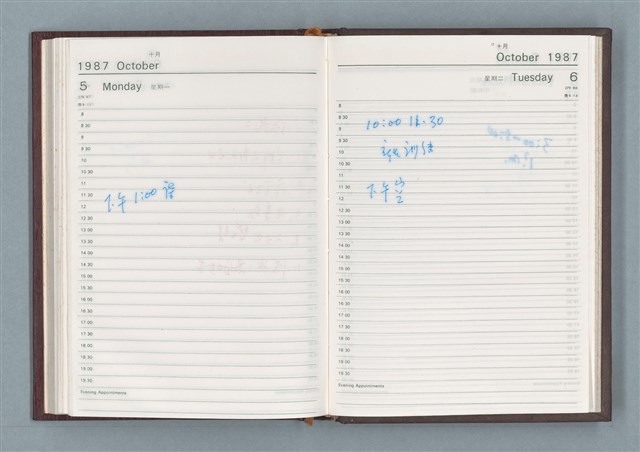 十月
1987 October
5 Monday 星期一
8
8 30
9
9 30
10
10 30
11
11 30
12
下午 1:00
12 30
13 00
13 30
14 00
14 30
15 00
15 30
16 00
16 30
17 00
17 30
18 00
18 30
19 00
19 30
Evening Appointments
十月
October 1987
星期二 Tuesday 6
8
8 30
9
10:00
9 30
10
訓練
10 30
11
11 30
下午
12
12 30
13 00
13 30
14 00
14 30
15 00
15 30
16 00
16 30
17 00
17 30
18 00
18 30
19 00
19 30
Evening Appointments